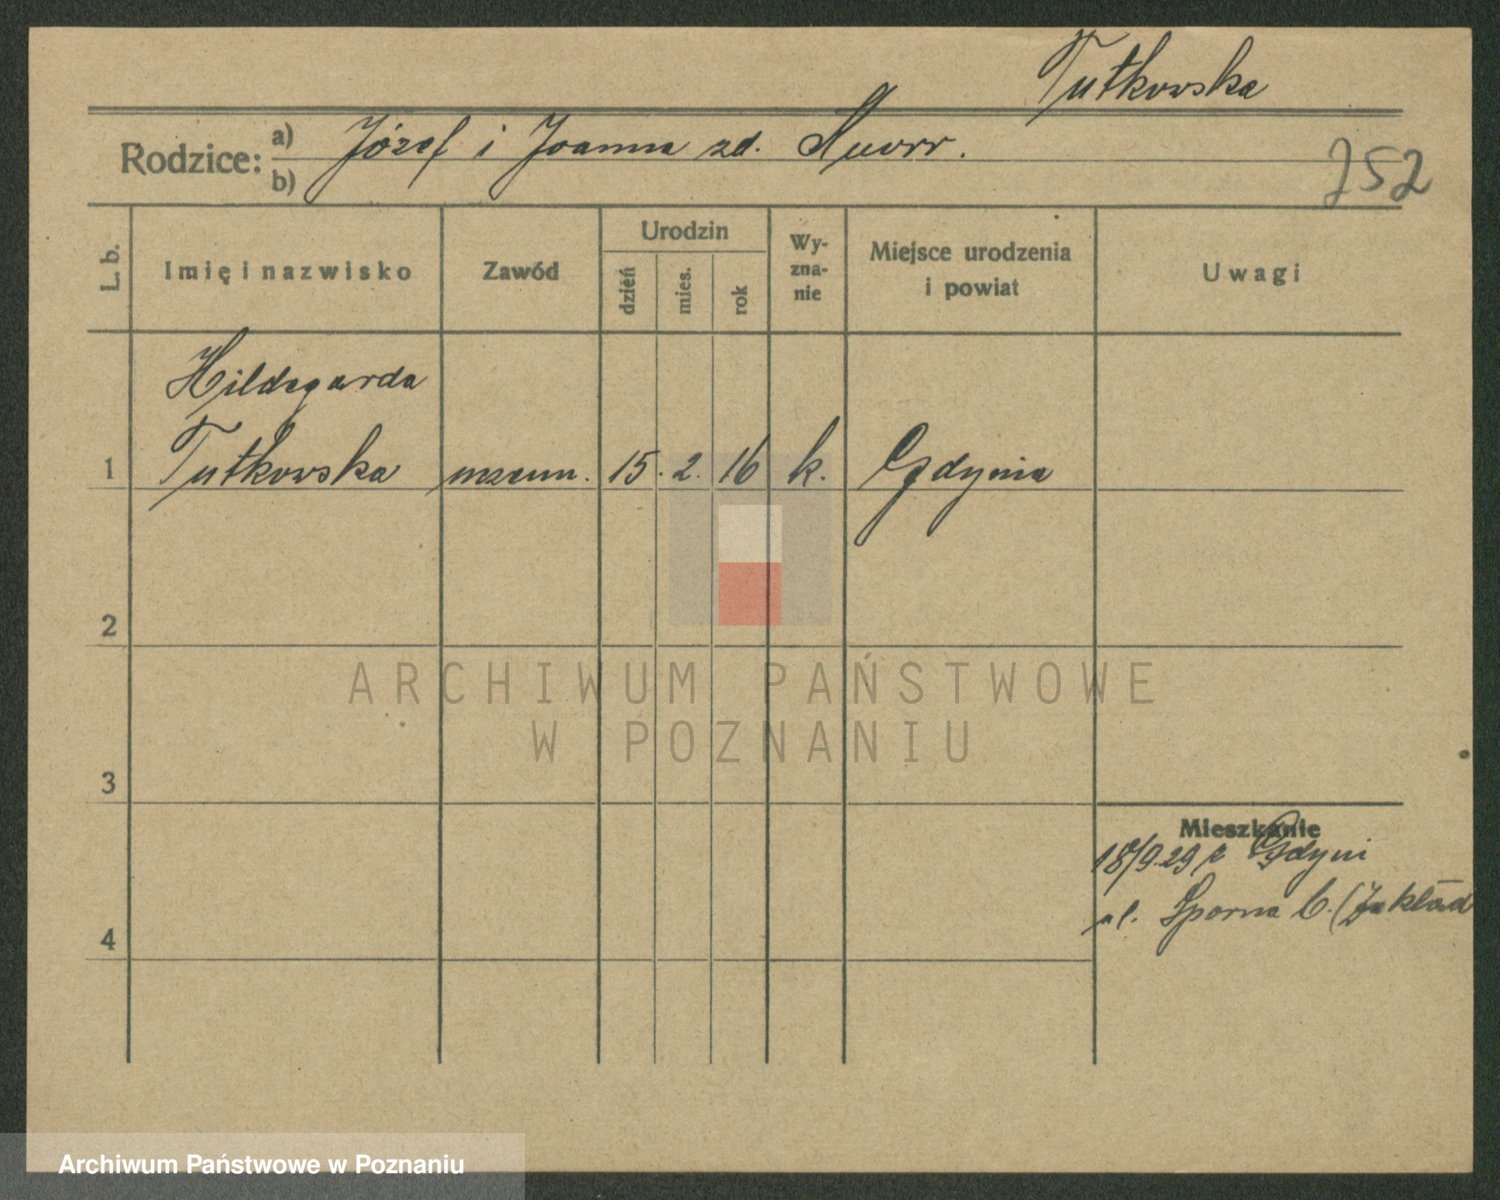 Tutkowska
Rodzice: a) Józef i Joanna zd.
b)
252
L. b.
Imię i nazwisko
Zawód
Urodzin
dzień
mies.
rok
Wy-
zna-
nie
Miejsce urodzenia
i powiat
Uwagi
Hildegarda
1 Tutkowska uczenn. 15. 2. 16 k. Gdynia
2
3
4
Mieszkanie
18/9.29 z Gdyni
ul. Sporna 6. (Zakład
ARCHIWUM PAŃSTWOWE
W POZNANIU
Archiwum Państwowe w Poznaniu